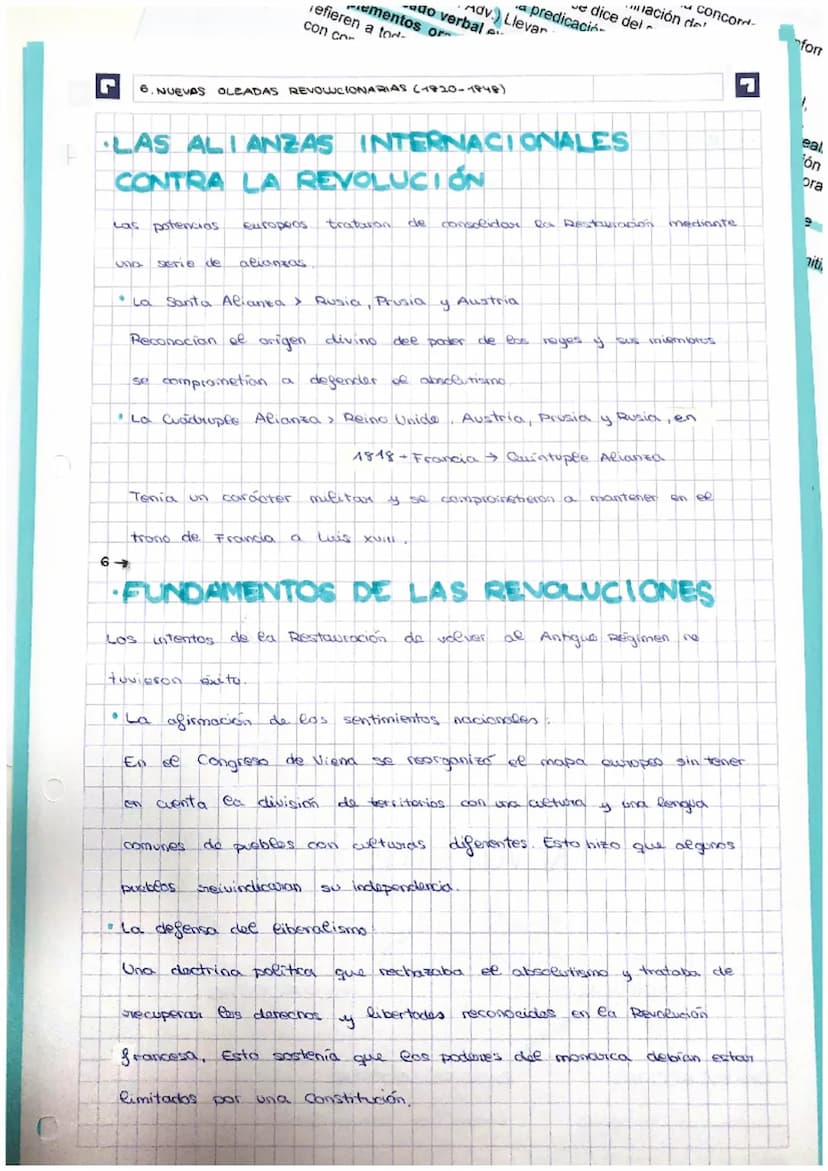 ado verbal
Adv.) Llevan
a predicación
se dice del
concord
refieren a tod
con con
6. NUEVAS OLEADAS REVOLUCIONARIAS (1820-1848)
·LAS ALIANZAS INTERNACIONALES
CONTRA LA REVOLUCIÓN
Las potencias europeas trataron de consolidar la Restauración mediante
una serie de alianzas.
• La Santa Alianza > Rusia, Prusia y Austria
Reconocían el origen divino del poder de los reyes y sus miembros
se comprometían a defender el absolutismo.
• La Cuádruple Alianza > Reino Unido, Austria, Prusia y Rusia, en
1818 - Francia → Quíntuple Alianza
Tenía un carácter militar y se comprometieron a mantener en el
trono de Francia a Luis XVIII.
6 →
·FUNDAMENTOS DE LAS REVOLUCIONES
Los intentos de la Restauración de volver al Antiguo Régimen no
tuvieron éxito.
• La afirmación de los sentimientos nacionales:
En el Congreso de Viena se reorganizó el mapa europeo sin tener
en cuenta la división de territorios con una cultura y una lengua
comunes de pueblos con culturas diferentes. Esto hizo que algunos
pueblos reivindicaran su independencia.
• La defensa del liberalismo
Una doctrina política que rechazaba el absolutismo y trataba de
recuperar los derechos y libertades reconocidos en la Revolución
francesa. Esta sostenía que los poderes del monarca debían estar
limitados por una Constitución.